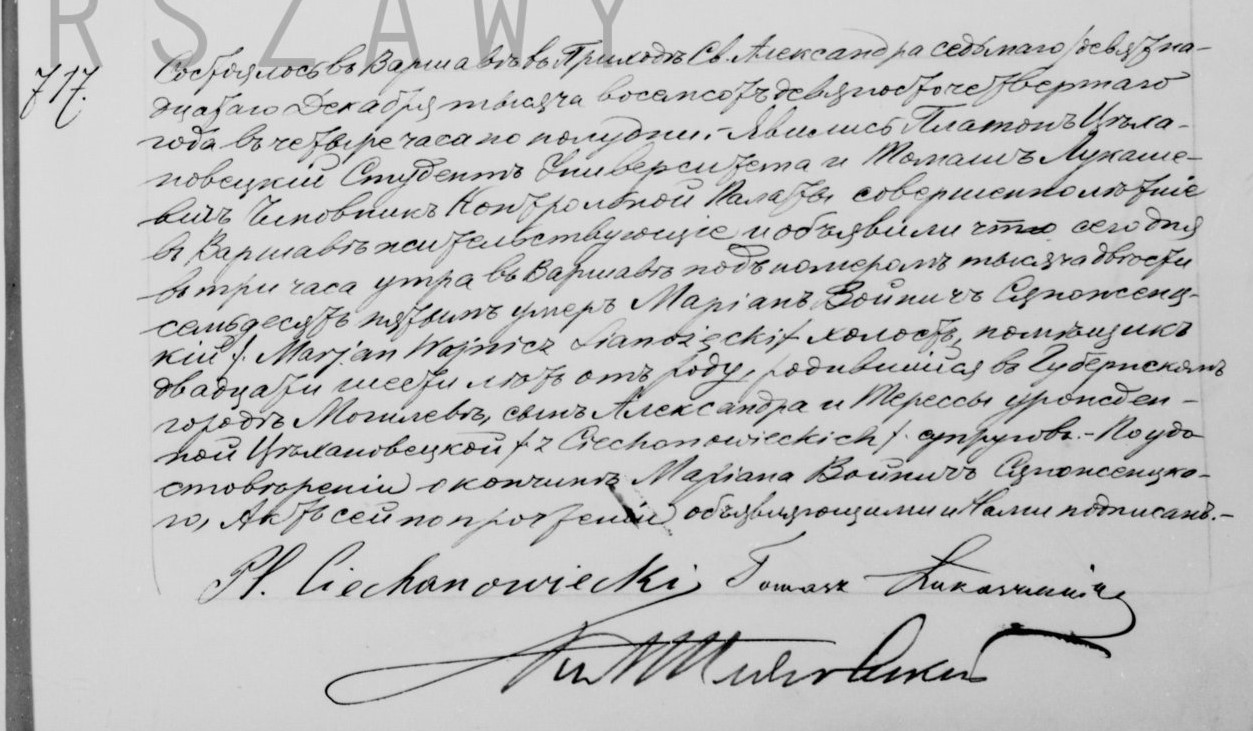 RSZAWY
717.
Состоялось въ Варшавѣ въ Приходѣ Св. Александра седьмаго /девятна-
дцатаго Декабря тысяча восемсотъ девяносто четвертаго
года въ четыре часа по полудни. – Явились Платонъ Цѣха-
новецкій Студентъ Университета и Томашъ Лукаше-
вичъ Чиновникъ Контрольной Палаты совершеннолѣтніе
въ Варшавѣ жительствующіе и объявили что сегодня
въ три часа утра въ Варшавѣ подъ номеромъ тысяча двѣсти
семьдесятъ пятымъ умеръ Маріанъ Войничъ Сяноженц-
кій /. Marjan Wojnicz Sianożęcki ./ холостъ, помѣщикъ
двадцати шести лѣтъ отъ роду, родившійся въ Губернскомъ
городѣ Могилевѣ, сынъ Александра и Терессы урожден-
ной Цѣхановецкой /. z Ciechanowieckich ./ супруговъ. – По удо-
стовѣреніи о кончинѣ Маріана Войничъ Сяножецка-
го, Актъ сей по прочтеніи объявляющими и Нами подписанъ. –
Pl. Ciechanowiecki Tomasz Łukaszewicz